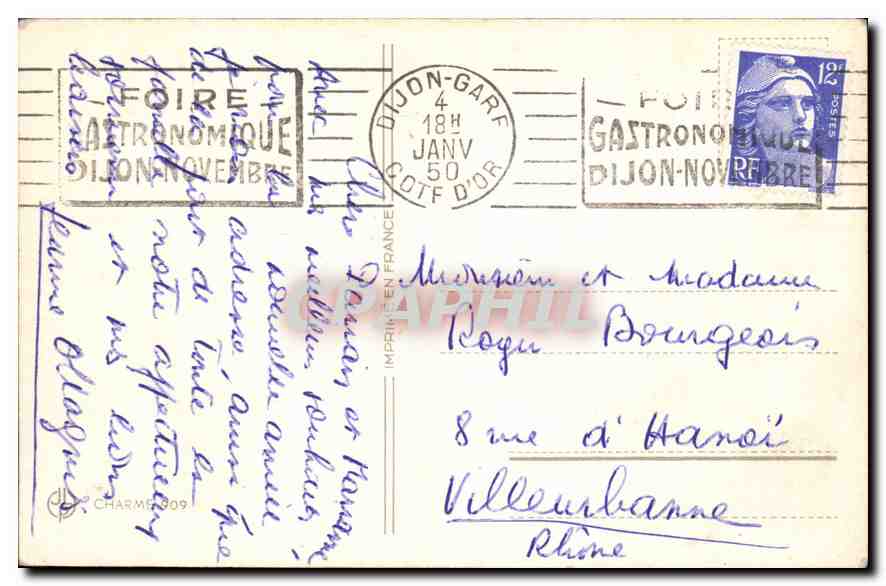 FOIRE
GASTRONOMIQUE
DIJON-NOVEMBRE
DIJON-GARE
4
18H
JANV
50
COTE D'OR
FOIRE
GASTRONOMIQUE
DIJON-NOVEMBRE
12F
POSTES
RF
Chers et
Avec mes meilleurs souhaits
pour la nouvelle année
je vous adresse, ainsi que
de la part de toute la
famille notre affectueux
souvenir et mes bons
baisers
Jeanne
IMPRIMÉ EN FRANCE
CPAPHIL
Monsieur et Madame
Roger Bourgeois
8 rue d'Hanoï
Villeurbanne
Rhône
CHARME 909